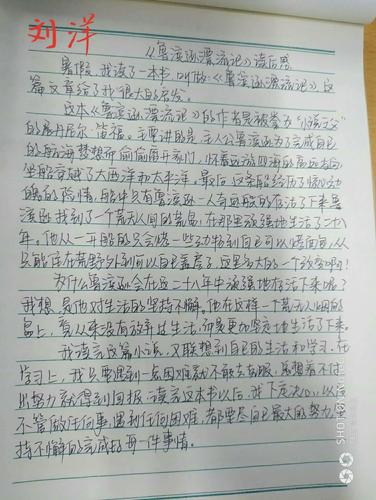 刘洋
《鲁滨逊漂流记》读后感
暑假,我读了一本书,叫做《鲁滨逊漂流记》这
篇文章给了我很大的启发。
这本《鲁滨逊漂流记》的作者是被拳为"小说之父"
的丹尼尔·笛福。主要讲的是:主人公鲁滨逊为了完成自己
的航海梦想而偷偷离开家门,怀着远游四海的高远志向
坐船穿越了大西洋和太平洋。最后,这条船经历了惊心动
魄的险情,船中只有鲁滨逊一人奇迹般的存活了下来鲁
滨逊找到了一个荒无人间的荒岛,在那里顽强地生活了二十八
年。他从一开始的只会烤一些动物到自己可以烤面包,从
只能住在荒野外到可以自己盖房子,这是多大的一个改变啊!
为什么鲁滨逊会在这二十八年中顽强地存活下来呢?
我想,是他对生活的坚持不懈。他在这样一个荒无人烟的
岛上,看从来没有放弃过生活,而是更加坚定地生活了下来。
我读完这篇小说,又联想到自己的生活和学习。在
学习上,我只要遇到一点困难就不敢去克服,总想着不付
出努力就得到回报。读完这本书以后,我下定决心,以后
不管做任何事,遇到任何困难,都要尽自己最大的努力,坚
持不懈的完成好每一件事情。
SHOT ON